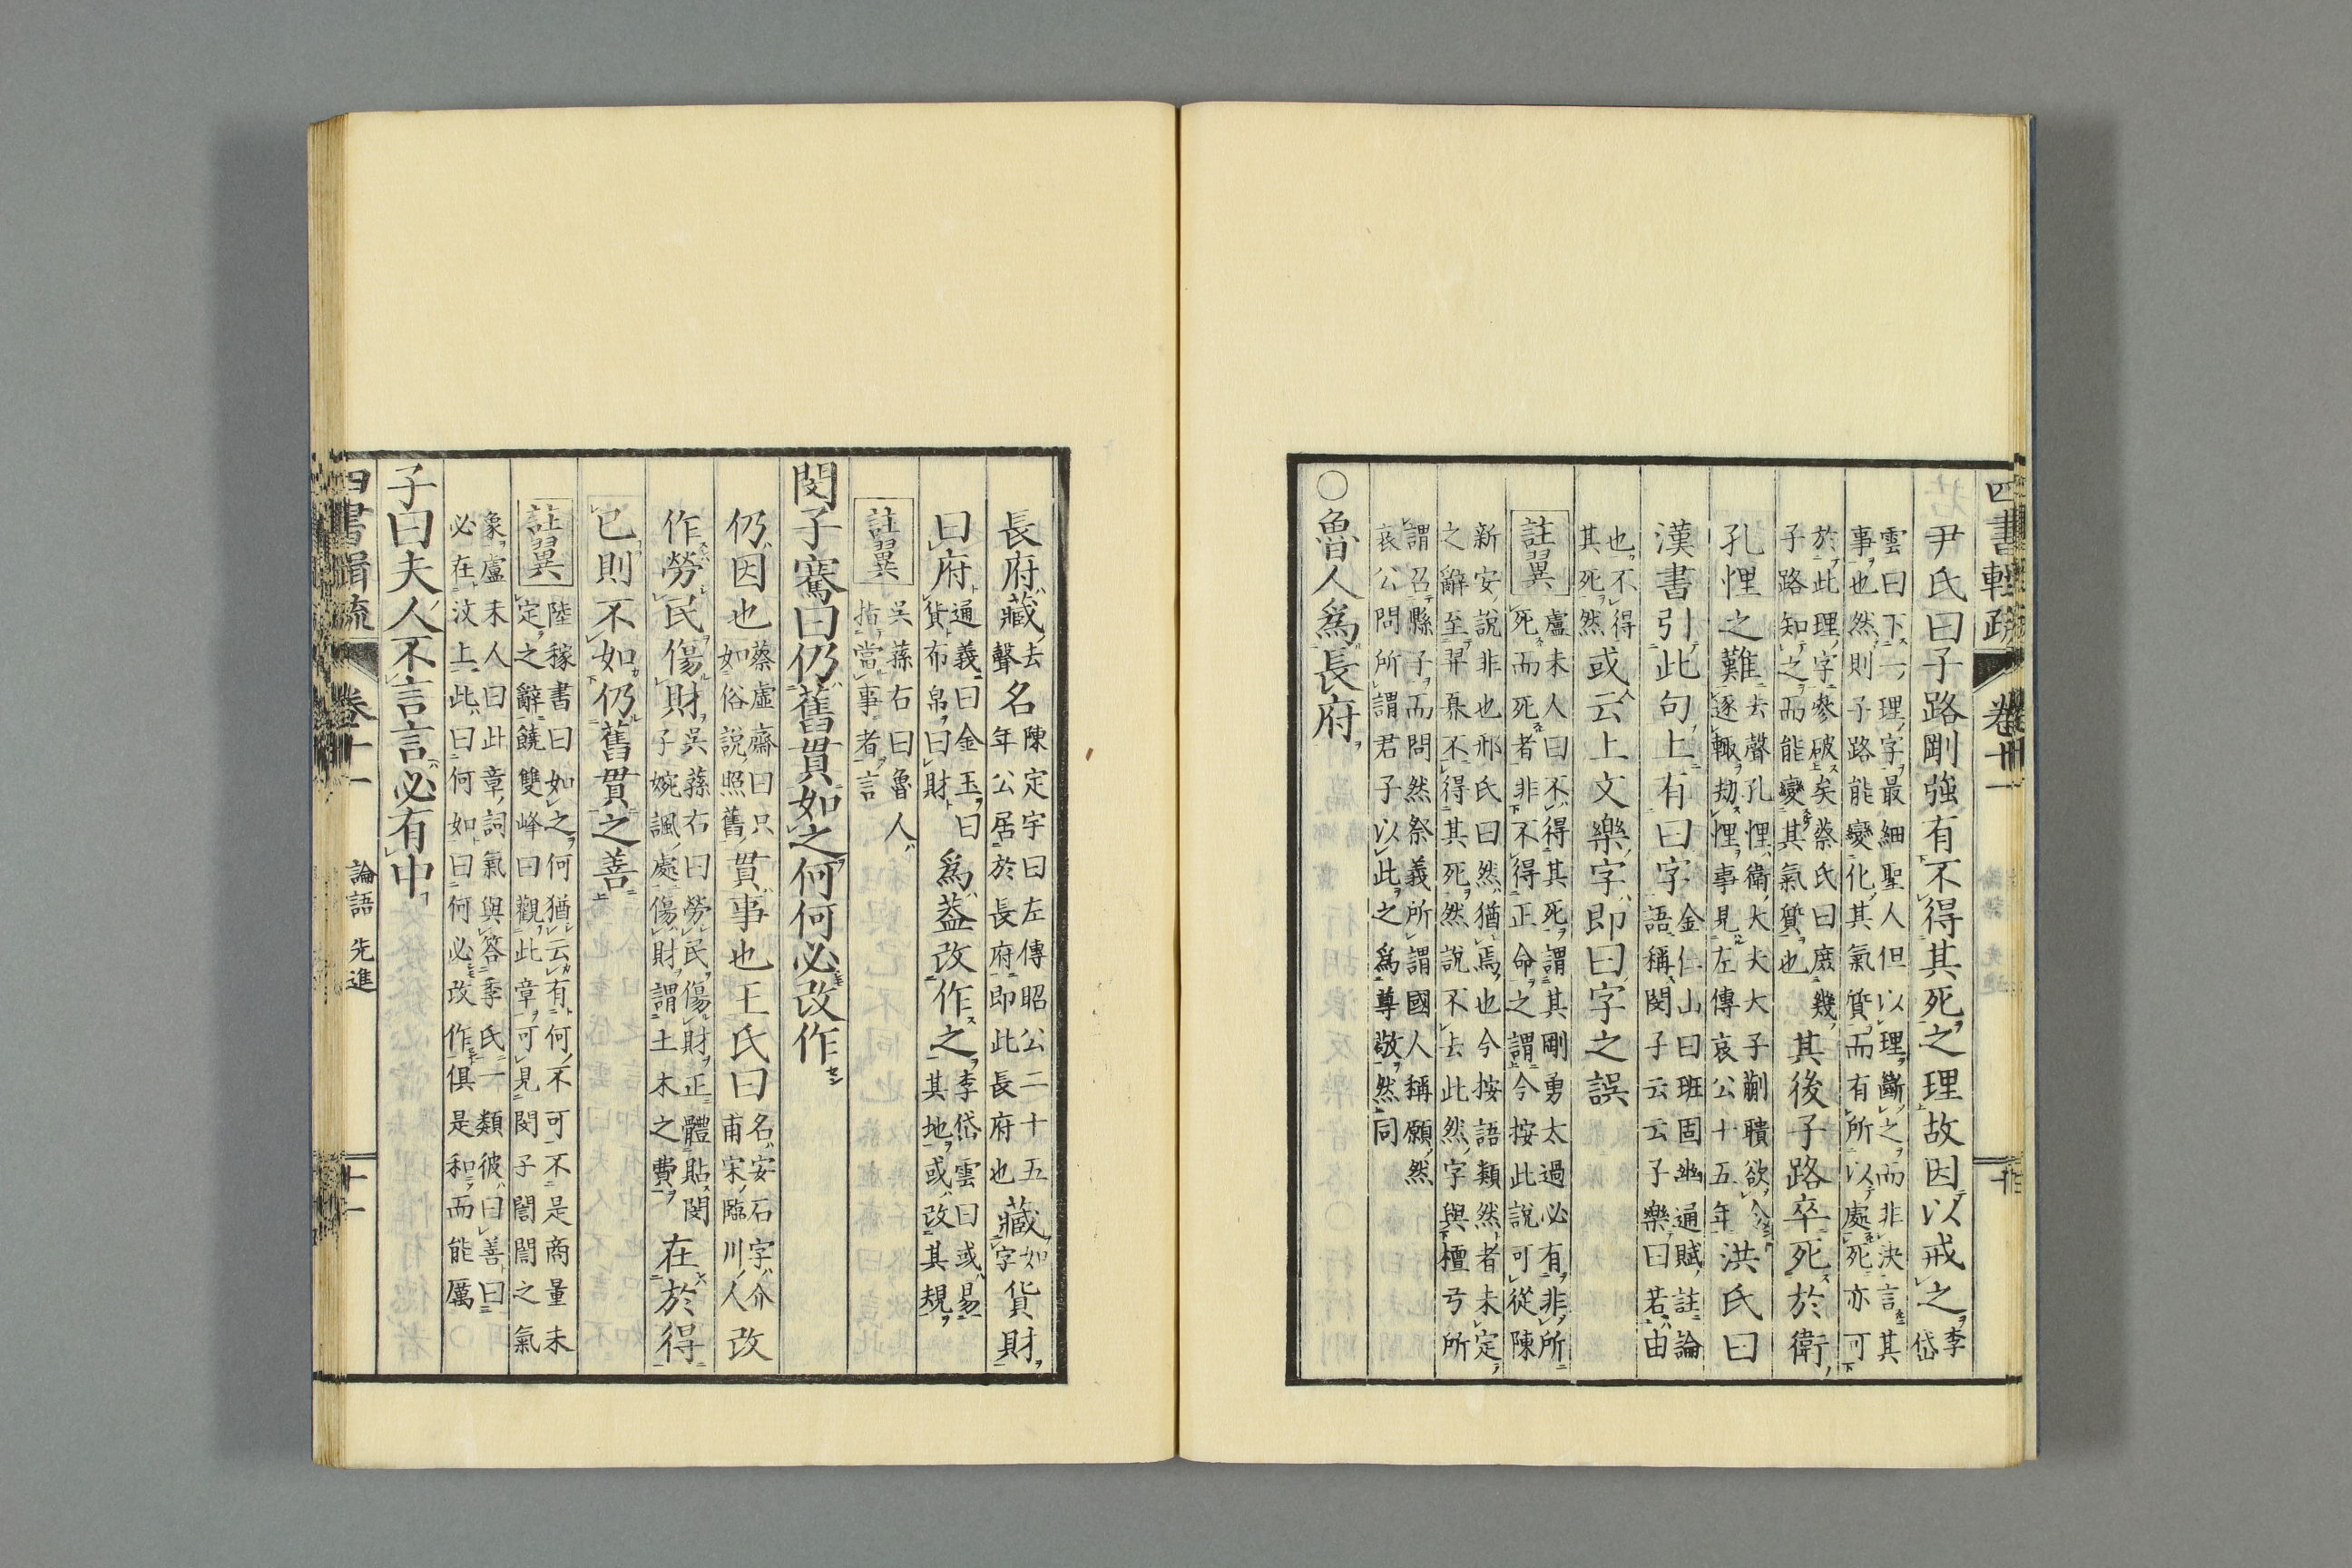 四書輯疏 卷十一
尹氏曰子路剛強有不得其死之理故因以戒之李岱
雲曰下一理字最細聖人但以理斷之而非決言其
事也然則子路能變化其氣質而有所以處死亦可
於此理字參破矣蔡氏曰庶幾
子路知之而能變其氣質也
其後子路卒死於衛
孔悝之難去聲孔悝衛大夫大子蒯聵欲入
逐輒劫悝事見左傳哀公十五年
洪氏曰
漢書引此句上有曰字金仁山曰班固幽通賦註論
語稱閔子云云子樂曰若由
也不得
其死然
或云上文樂字即曰字之誤
註翼
盧未人曰不得其死謂其剛勇太過必有非所
死而死者非不得正命之謂今按此說可從陳
新安說非也邢氏曰然猶焉也今按語類然者未定
之辭至羿奡不得其死然說不去此然字與檀弓所
謂召縣子而問然祭義所謂國人稱願然
哀公問所謂君子以此之為尊敬然同
○魯人爲長府
長府藏去聲名陳定宇曰左傳昭公二十五
年公居於長府即此長府也
藏如字貨財
曰府通義曰金玉曰
貨布帛曰財
爲蓋改作之李岱雲曰或易
其地或改其規
註翼
吳蓀右曰魯人
指當事者言
閔子騫曰仍舊貫如之何何必改作
仍因也蔡虛齋曰只
如俗說照舊
貫事也王氏曰名安石字介
甫宋臨川人
改
作勞民傷財吳蓀右曰勞民傷財正體貼閔
子婉諷處傷財謂土木之費
在於得
已則不如仍舊貫之善
註翼
陸稼書曰如之何猶云有何不可不是商量未
定之辭饒雙峰曰觀此章可見閔子誾誾之氣
象盧未人曰此章詞氣與答季氏一類彼曰善曰
必在汶上此曰何如曰何必改作俱是和而能厲
子曰夫人不言言必有中
四書輯疏 卷十一 論語 先進 十一